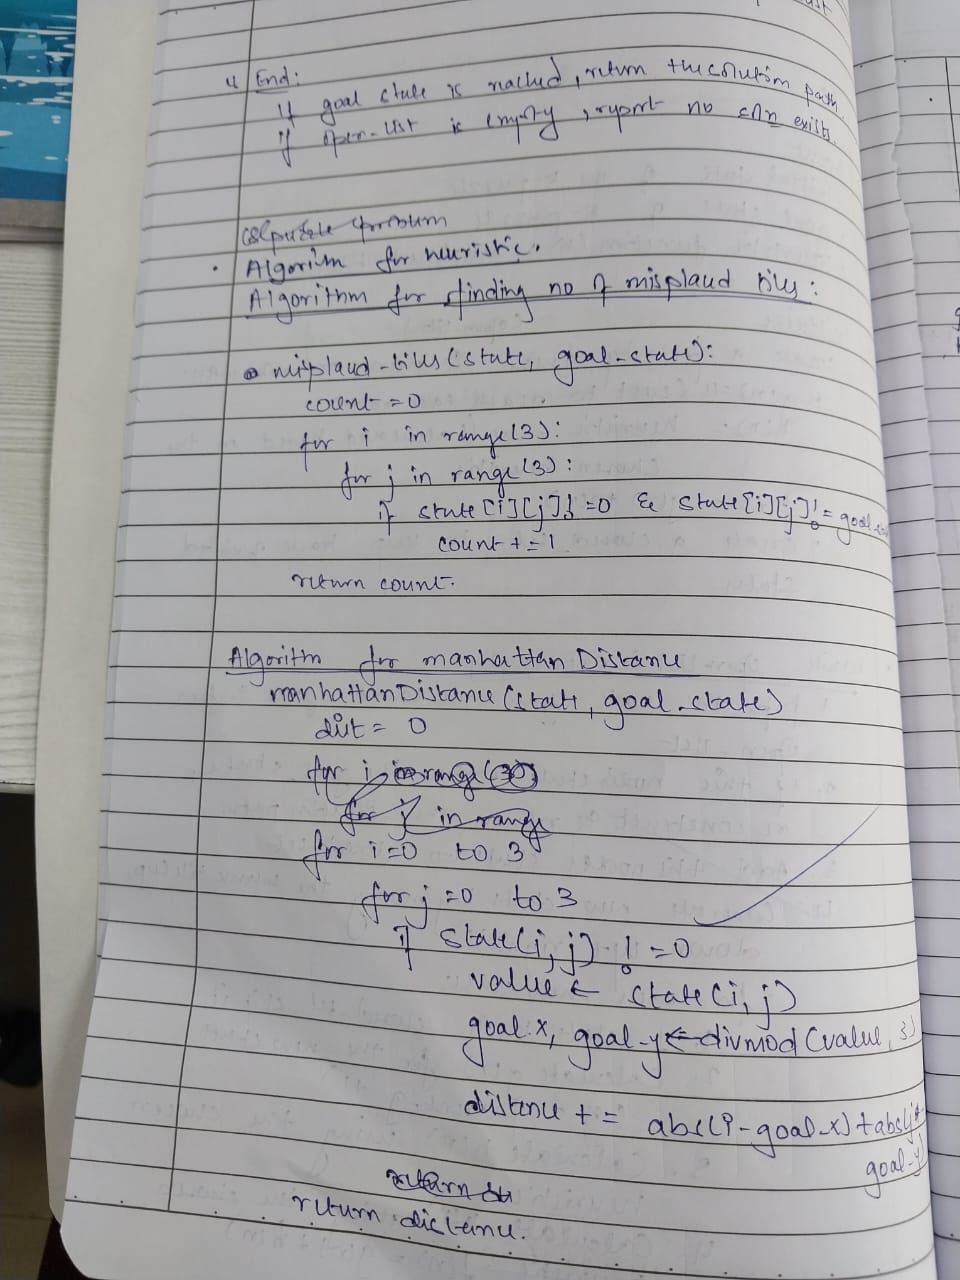 4 End:
If goal state is reached, return the solution path
if open-list is empty, report no soln exists.
Algorithm for heuristic.
Algorithm for finding no of misplaced tiles:
misplaced-tiles (state, goal-state):
count = 0
for i in range(3):
for j in range(3):
if state[i][j]! = 0 & state[i][j]! = goal
count + = 1
return count.
Algorithm for manhattan Distance
manhattanDistance (state, goal-state)
dist = 0
for i in range(30)
for j in range
for i=0 to 3
for j = 0 to 3
if state(i, j) ! = 0
value ← state(i, j)
goal.x, goal-y ← divmod (value, 3)
distance + = abs(i-goal-x) + abs(j-
goal-y)
return
return distance.